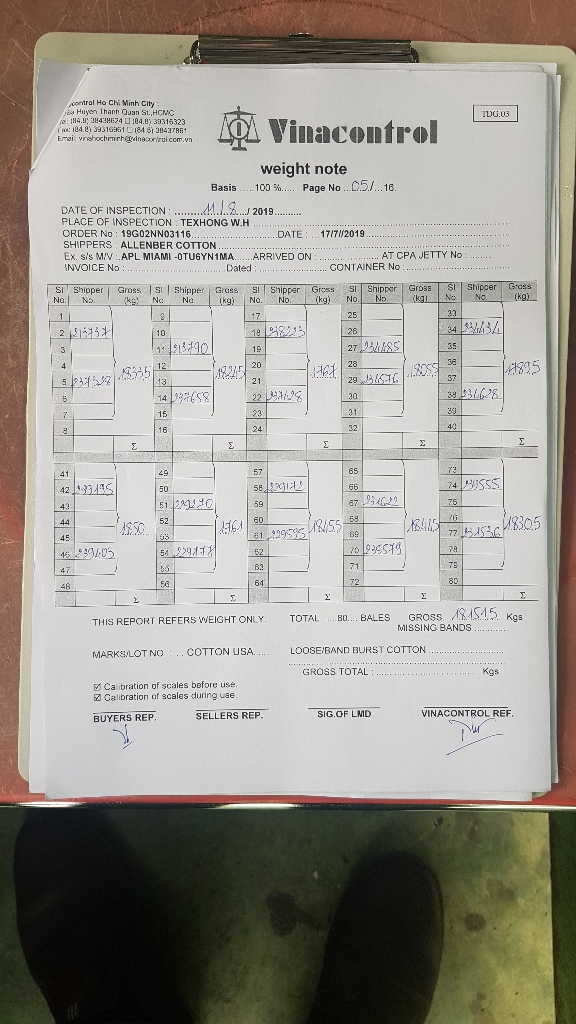 control Ho Chi Minh City :
Huyen Thanh Quan St.,HCMC
(84.8) 38438624 ☐ (84.8) 39316323
Fax: (84.8) 39316961 ☐ (84.8) 38437861
Email: vinahochiminh@vinacontrol.com.vn
TDG.03
Vinacontrol
weight note
Basis .....100 %..... Page No ...05/...16.
DATE OF INSPECTION : .........11/8.../ 2019.........
PLACE OF INSPECTION : TEXHONG W.H
ORDER No : 19G02NN03116 DATE : 17/7//2019
SHIPPERS : ALLENBER COTTON
Ex. s/s M/V : APL MIAMI -0TU6YN1MA ARRIVED ON : AT CPA JETTY No :
INVOICE No : Dated : CONTAINER No :
SI No. Shipper No. Gross (kg) SI No. Shipper No. Gross (kg) SI No. Shipper No. Gross (kg) SI No. Shipper No. Gross (kg) SI No. Shipper No. Gross (kg)
1 9 17 25 33
2 213737 10 18 238223 26 34 234434
3 11 213790 19 27 234485 35
4 1833.5 12 1824.5 20 1767 28 1805.5 36 1789.5
5 237328 13 21 29 234576 37
6 14 237658 22 237428 30 38 234628
7 15 23 31 39
8 16 24 32 40
Σ Σ Σ Σ Σ
41 49 57 65 73
42 229195 50 58 229172 66 74
43 51 229270 59 67 231622 75
44 1850 52 1761 60 1845.5 68 1841.5 76 1830.5
45 53 61 229595 69 77 231536
46 229403 54 229177 62 70 235579 78
47 55 63 71 79
48 56 64 72 80
Σ Σ Σ Σ Σ
THIS REPORT REFERS WEIGHT ONLY. TOTAL ...80.... BALES GROSS 18151.5 Kgs
MISSING BANDS
MARKS/LOT NO : .. COTTON USA..... LOOSE/BAND BURST COTTON
GROSS TOTAL : Kgs
☑ Calibration of scales before use.
☑ Calibration of scales during use.
BUYERS REP. SELLERS REP. SIG.OF LMD VINACONTROL REF.